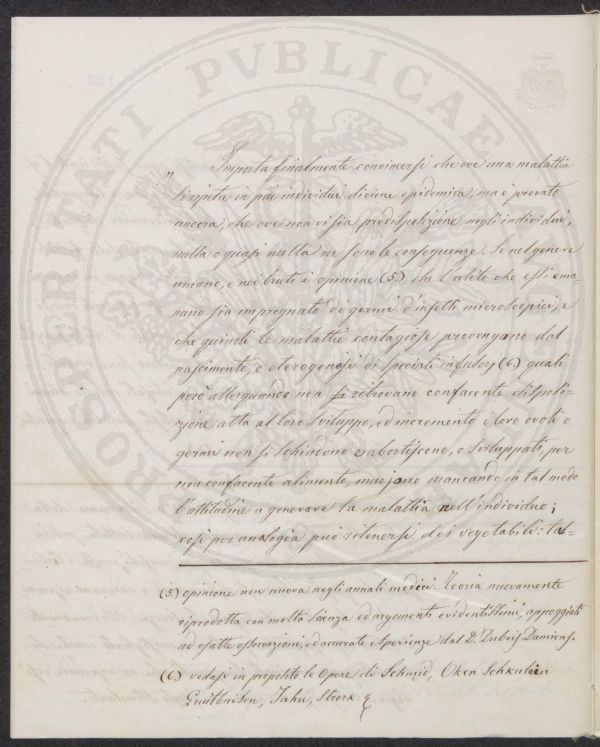 PROSPERITATI PVBLICAE
„ Importa finalmente convincersi che ove una malattia
si ripeta in più individui diviene epidemica, ma è provato
ancora, che ove non vi sia predisposizione negli individui,
nulla o quasi nulla ne sono le conseguenze. Se nel genere
umano, e nei bruti è opinione (5) che l'alito che essi ema-
nano sia impregnato di germi d'insetti microscopici, e
che quindi le malattie contagiose provengano dal
nascimento, o eterogenesi di speciali infusorj (6) quali
però allorquando non si ritrovano confacente disposi-
zione atta al loro sviluppo, ed incremento i loro ovoli o
germi non si schiudono ed abortiscono, o sviluppati, per
non confacente alimento, muojono mancando in tal modo
l'attitudine a generare la malattia nell'individuo;
così per analogia può ritenersi dei vegetabili: tal-
(5) opinione non nuova negli annali medici. Teoria nuovamente
riprodotta con molta scienza ed argomenti evidentissimi, appoggiati
ad esatte osservazioni, ed accurate esperienze dal D. Dubois Damiens.
(6) vedasi in proposito le Opere di Schmid, Oken
Jahn, Strork